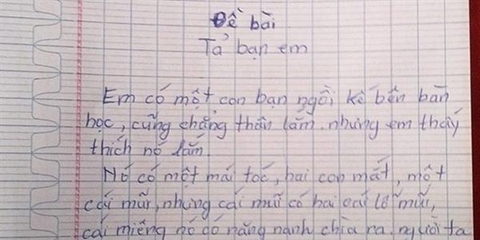 Đề bài
Tả bạn em
Em có một con bạn ngồi kế bên bàn
học, cũng chẳng thân lắm, nhưng em thấy
thích nó lắm.
Nó có một mái tóc, hai con mắt, một
cái mũi, nhưng cái mũi có hai cái lỗ mũi,
cái miệng nó có răng nanh chìa ra, người ta